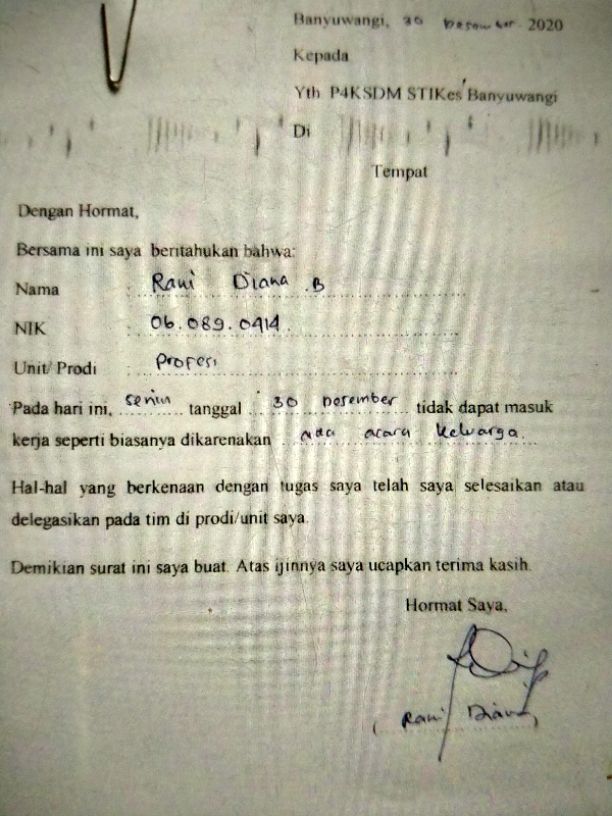 Banyuwangi, 30 Desember 2020
Kepada
Yth P4KSDM STIKes Banyuwangi
Di
Tempat
Dengan Hormat,
Bersama ini saya beritahukan bahwa:
Nama : Rani Diana .B
NIK : 06.089.0414
Unit/ Prodi : Profesi
Pada hari ini, senin tanggal 30 Desember tidak dapat masuk
kerja seperti biasanya dikarenakan ada acara keluarga.
Hal-hal yang berkenaan dengan tugas saya telah saya selesaikan atau
delegasikan pada tim di prodi/unit saya.
Demikian surat ini saya buat. Atas ijinnya saya ucapkan terima kasih.
Hormat Saya,
( Rani Diana )